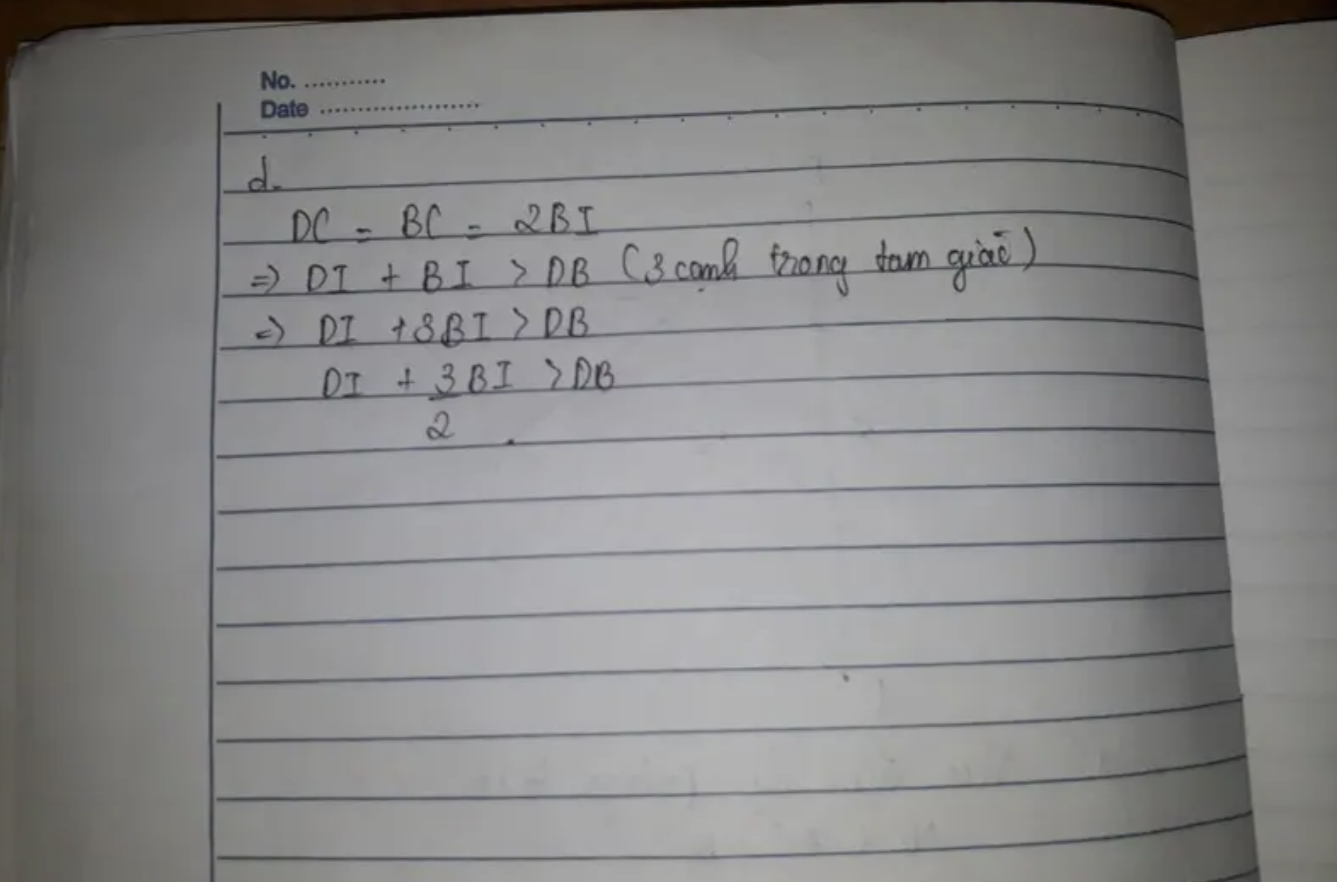 No. ...........
Date .....................
d.
DC = BC = 2BI
=> DI + BI > DB (3 cạnh trong tam giác)
=> DI + 3BI > DB
DI + 3/2 BI > DB